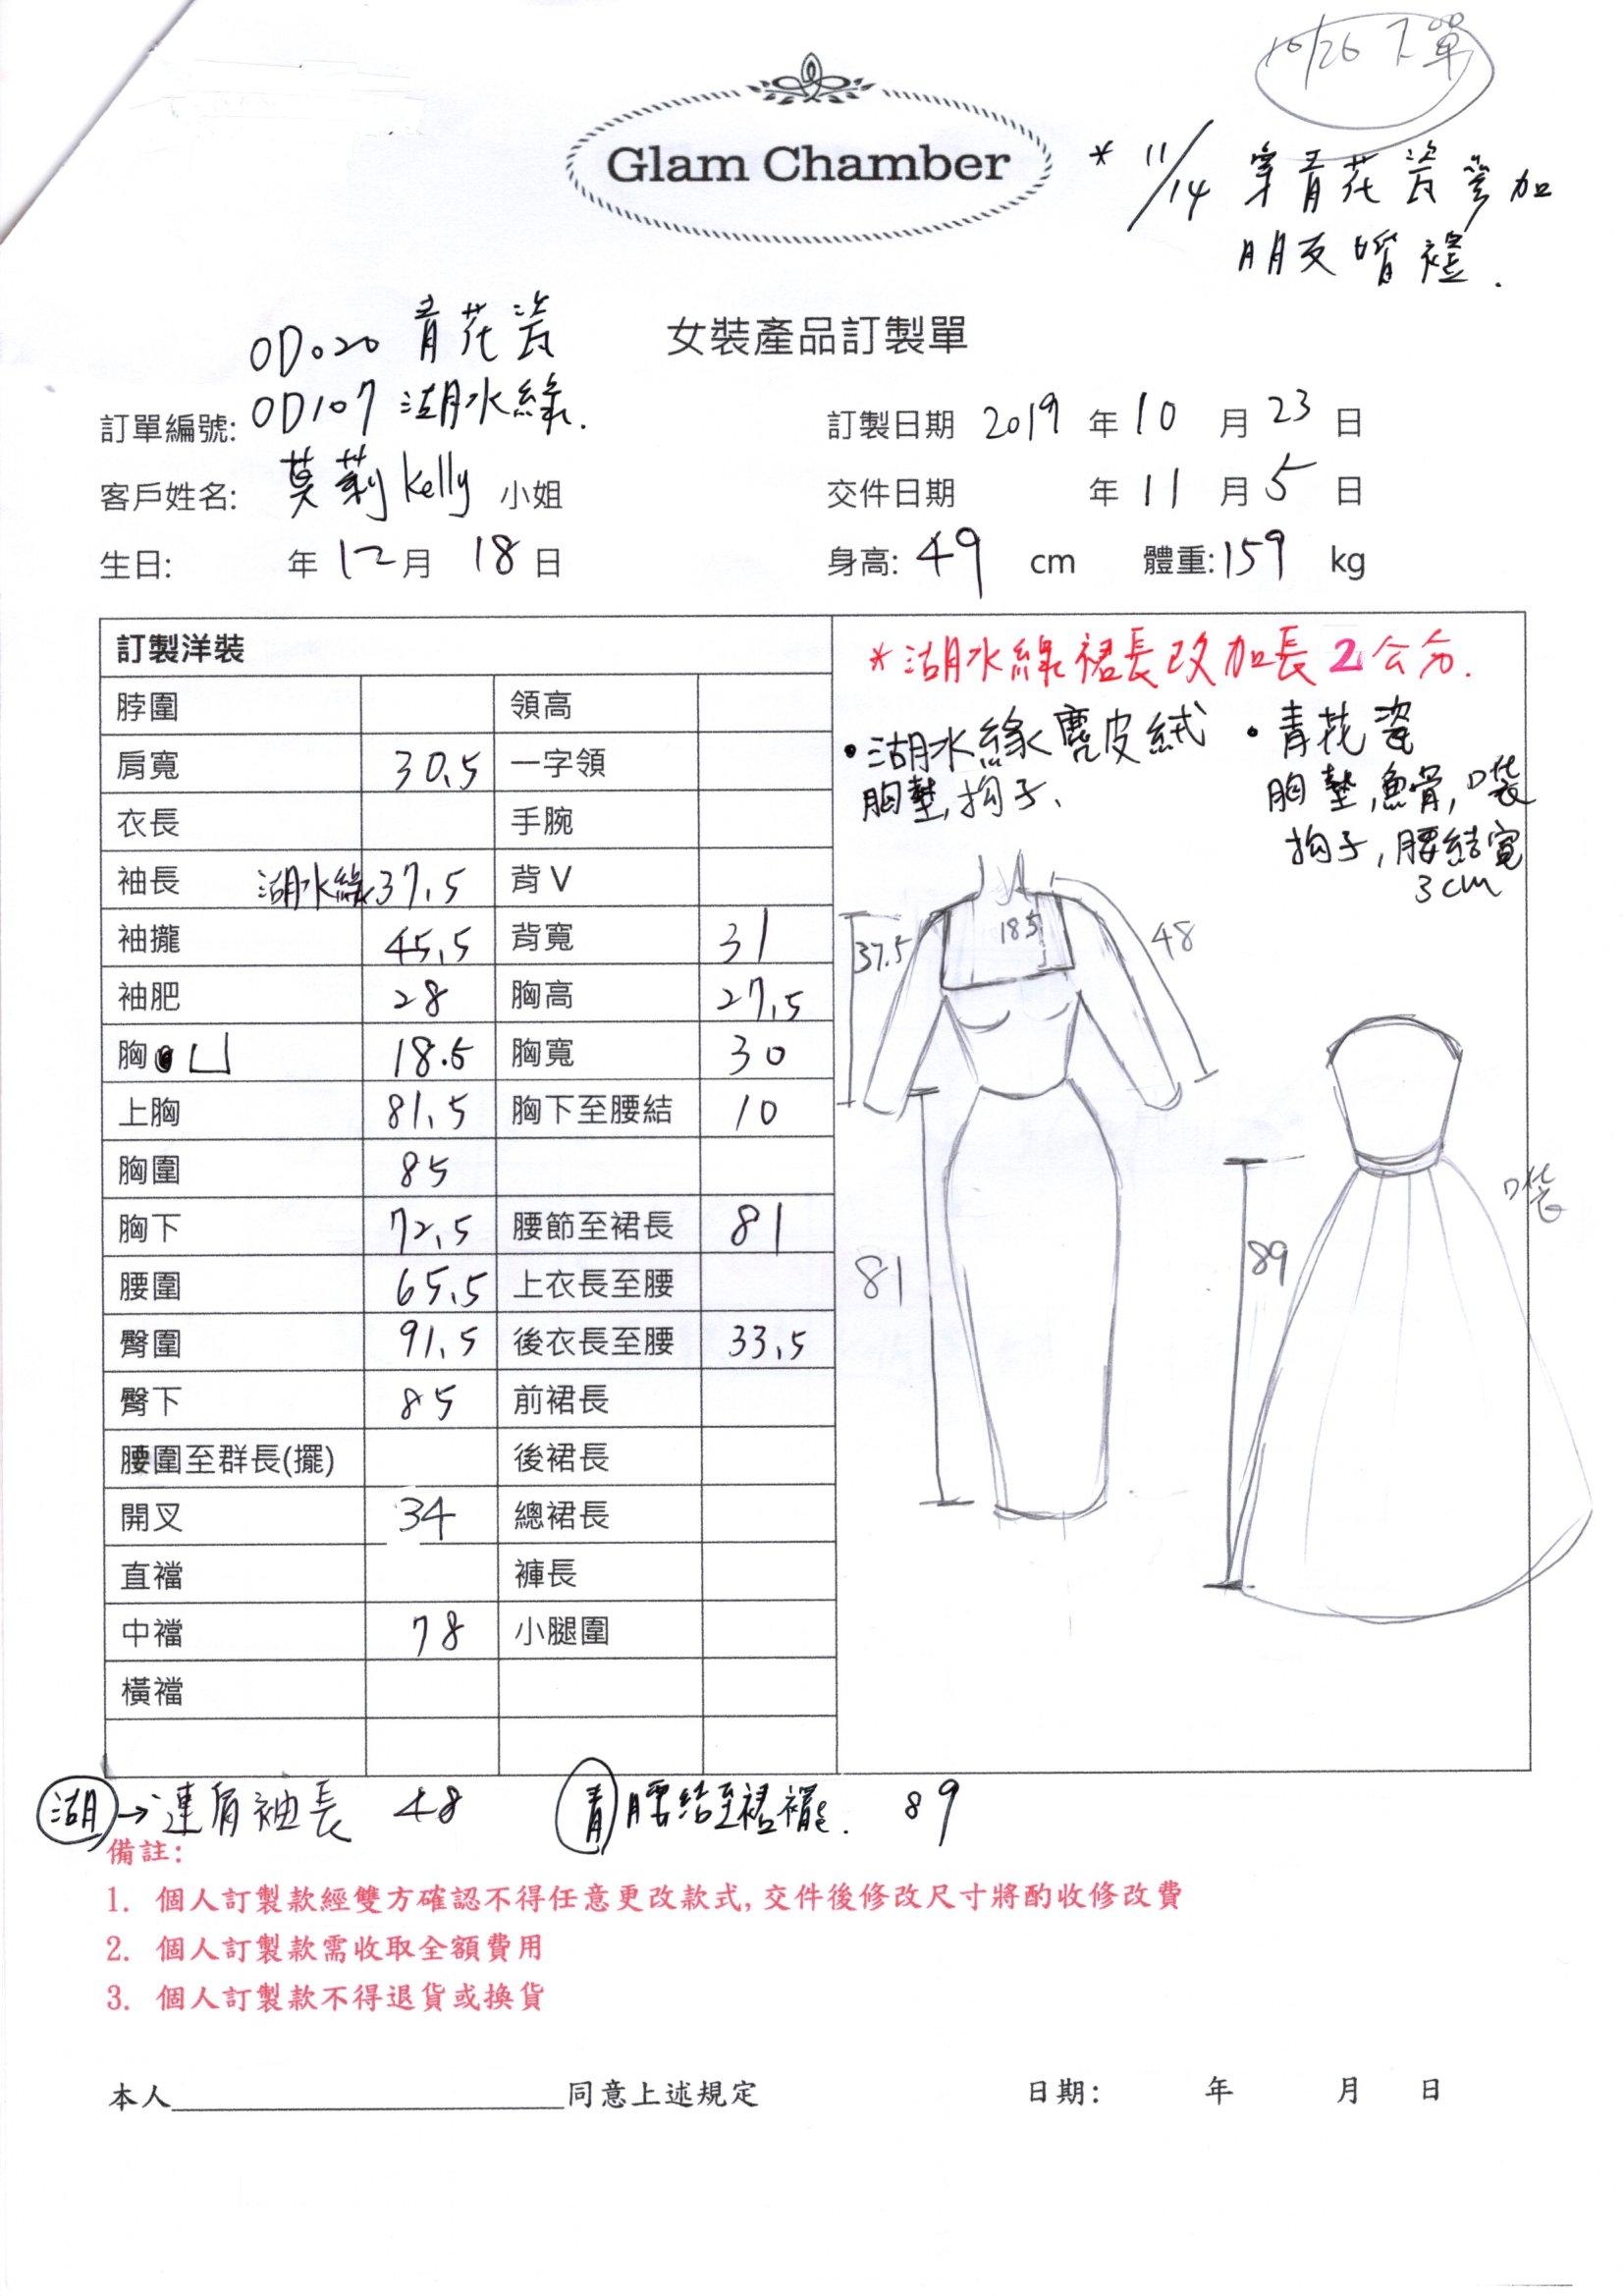 10/26 下單
Glam Chamber
* 11/14 穿青花瓷參加
朋友婚禮.
女裝產品訂製單
OD020 青花瓷
訂單編號: OD107 湖水綠.
訂製日期 2019 年 10 月 23 日
客戶姓名: 莫莉 Kelly 小姐
交件日期 年 11 月 5 日
生日: 年 12 月 18 日
身高: 49 cm 體重: 159 kg
訂製洋裝
脖圍 領高
肩寬 30.5 一字領
衣長 手腕
袖長 湖水綠 37.5 背 V
袖攏 45.5 背寬 31
袖肥 28 胸高 27.5
胸 凵 18.5 胸寬 30
上胸 81.5 胸下至腰結 10
胸圍 85
胸下 72.5 腰節至裙長 81
腰圍 65.5 上衣長至腰
臀圍 91.5 後衣長至腰 33.5
臀下 85 前裙長
腰圍至群長(擺) 後裙長
開叉 34 總裙長
直襠 褲長
中襠 78 小腿圍
橫襠
* 湖水綠裙長改加長 2 公分.
• 湖水綠麂皮絨
胸墊, 拘子、
• 青花瓷
胸墊, 魚骨, 口袋
拘子, 腰結寬
3cm
37.5
18.5
48
81
89
口袋
湖 → 連肩袖長 48 青 腰結至裙襬. 89
備註:
1. 個人訂製款經雙方確認不得任意更改款式, 交件後修改尺寸將酌收修改費
2. 個人訂製款需收取全額費用
3. 個人訂製款不得退貨或換貨
本人____________________同意上述規定 日期: 年 月 日